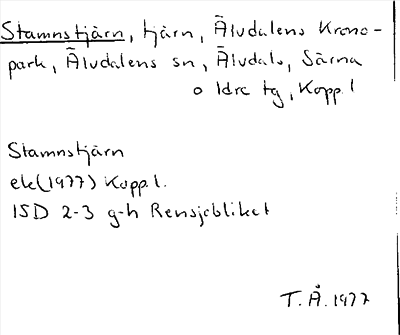 Stamnstjärn, tjärn, Älvdalens Krono-
park, Älvdalens sn, Älvdals, Särna
o Idre tg, Kopp. l
Stamnstjärn
ek(1977) Kopp l.
15D 2-3 g-h Rensjöbliket
T. Å. 1977